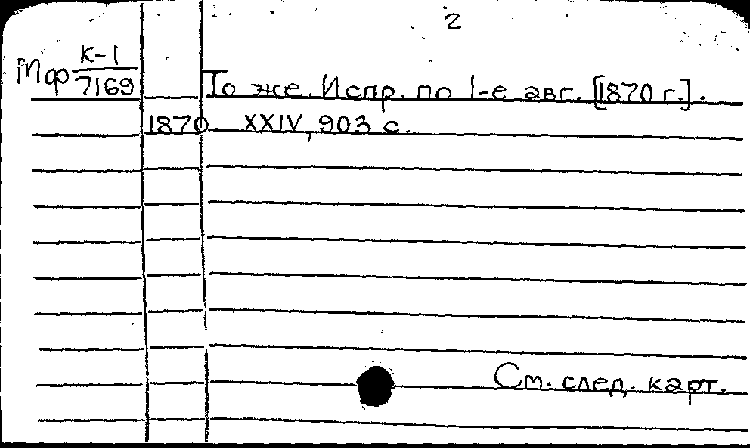 2
Мф К-1/7169
То же. Испр. по 1-е авг. [1870 г.].
1870 XXIV, 903 с.
См. след. карт.